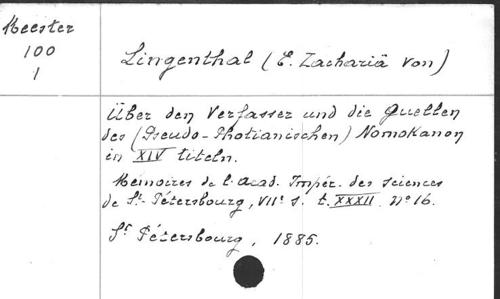 Meester
100
1
Lingenthal (E. Zachariä von)
Über den Verfasser und die Quellen
des (Pseudo-Photianischen) Nomokanon
in XIV titeln.
Mémoires de l'acad. Impér. des sciences
de St. Pétersbourg, VIIe s. t. XXXII. No 16.
St Pétersbourg, 1885.